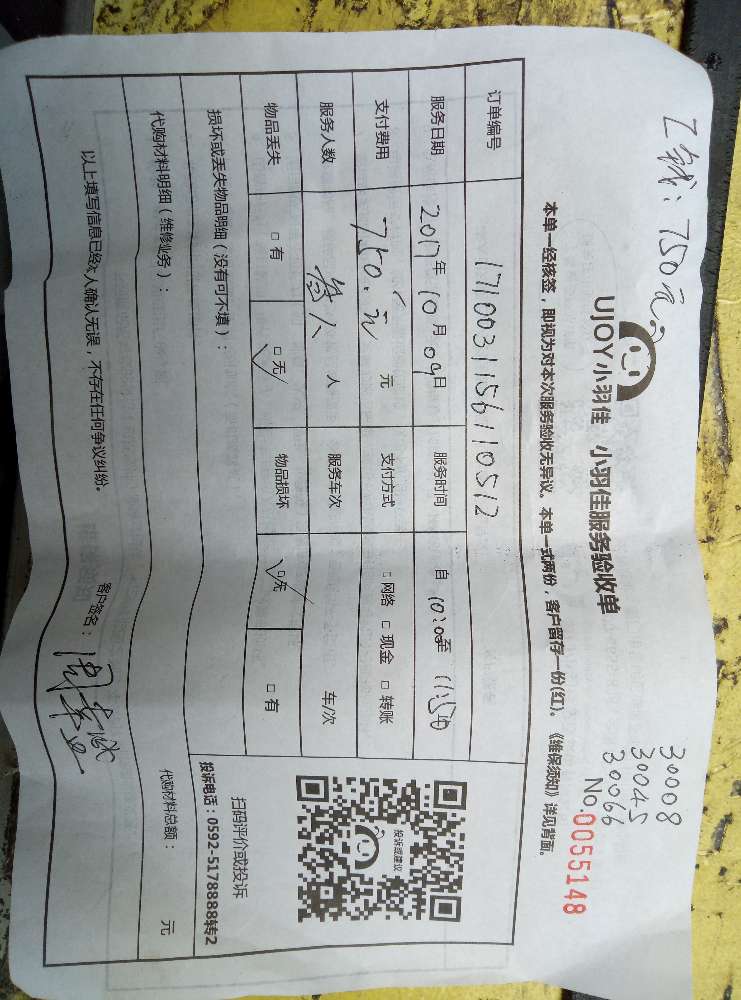 工钱：750元
30008
30045
30066
UJOY小羽佳 小羽佳服务验收单
No.0055148
本单一经核签，即视为对本次服务验收无异议。本单一式两份，客户留存一份(红)。《维保须知》详见背面。
订单编号 1710031156110512
服务日期 2017年 10月 09日 服务时间 自 10:00至 11:50
支付费用 750.元 元 支付方式 □ 网络 □ 现金 □ 转账
服务人数 叁人 人 服务车次 车/次
物品丢失 □ 有 □ 无 物品损坏 □ 无 □ 有
损坏或丢失物品明细（没有可不填）：
投诉或建议
扫码评价或投诉
投诉电话：0592-5178888转2
代购材料明细（维修业务）： 代购材料总额： 元
以上填写信息已经本人确认无误，不存在任何争议纠纷。 客户签名：